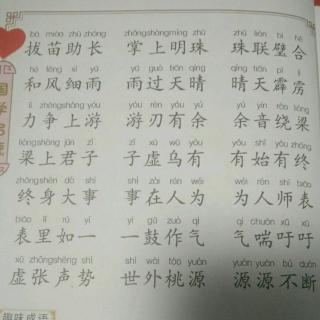 bá miáo zhù zhǎng zhǎngshàngmíng zhū zhū lián bì hé
拔苗助长 掌上明珠 珠联璧合
hé fēng xì yǔ yǔ guò tiān qíng qíng tiān pī lì
和风细雨 雨过天晴 晴天霹雳
lì zhēngshàng yóu yóu rèn yǒu yú yú yīn rào liáng
力争上游 游刃有余 余音绕梁
liángshàng jūn zǐ zǐ xū wū yǒu yǒu shǐ yǒu zhōng
梁上君子 子虚乌有 有始有终
zhōngshēn dà shì shì zài rén wéi wéi rén shī biǎo
终身大事 事在人为 为人师表
biǎo lǐ rú yī yì gǔ zuò qì qì chuǎn xū xū
表里如一 一鼓作气 气喘吁吁
xū zhāngshēng shì shì wài táo yuán yuányuán bú duàn
虚张声势 世外桃源 源源不断
趣味成语